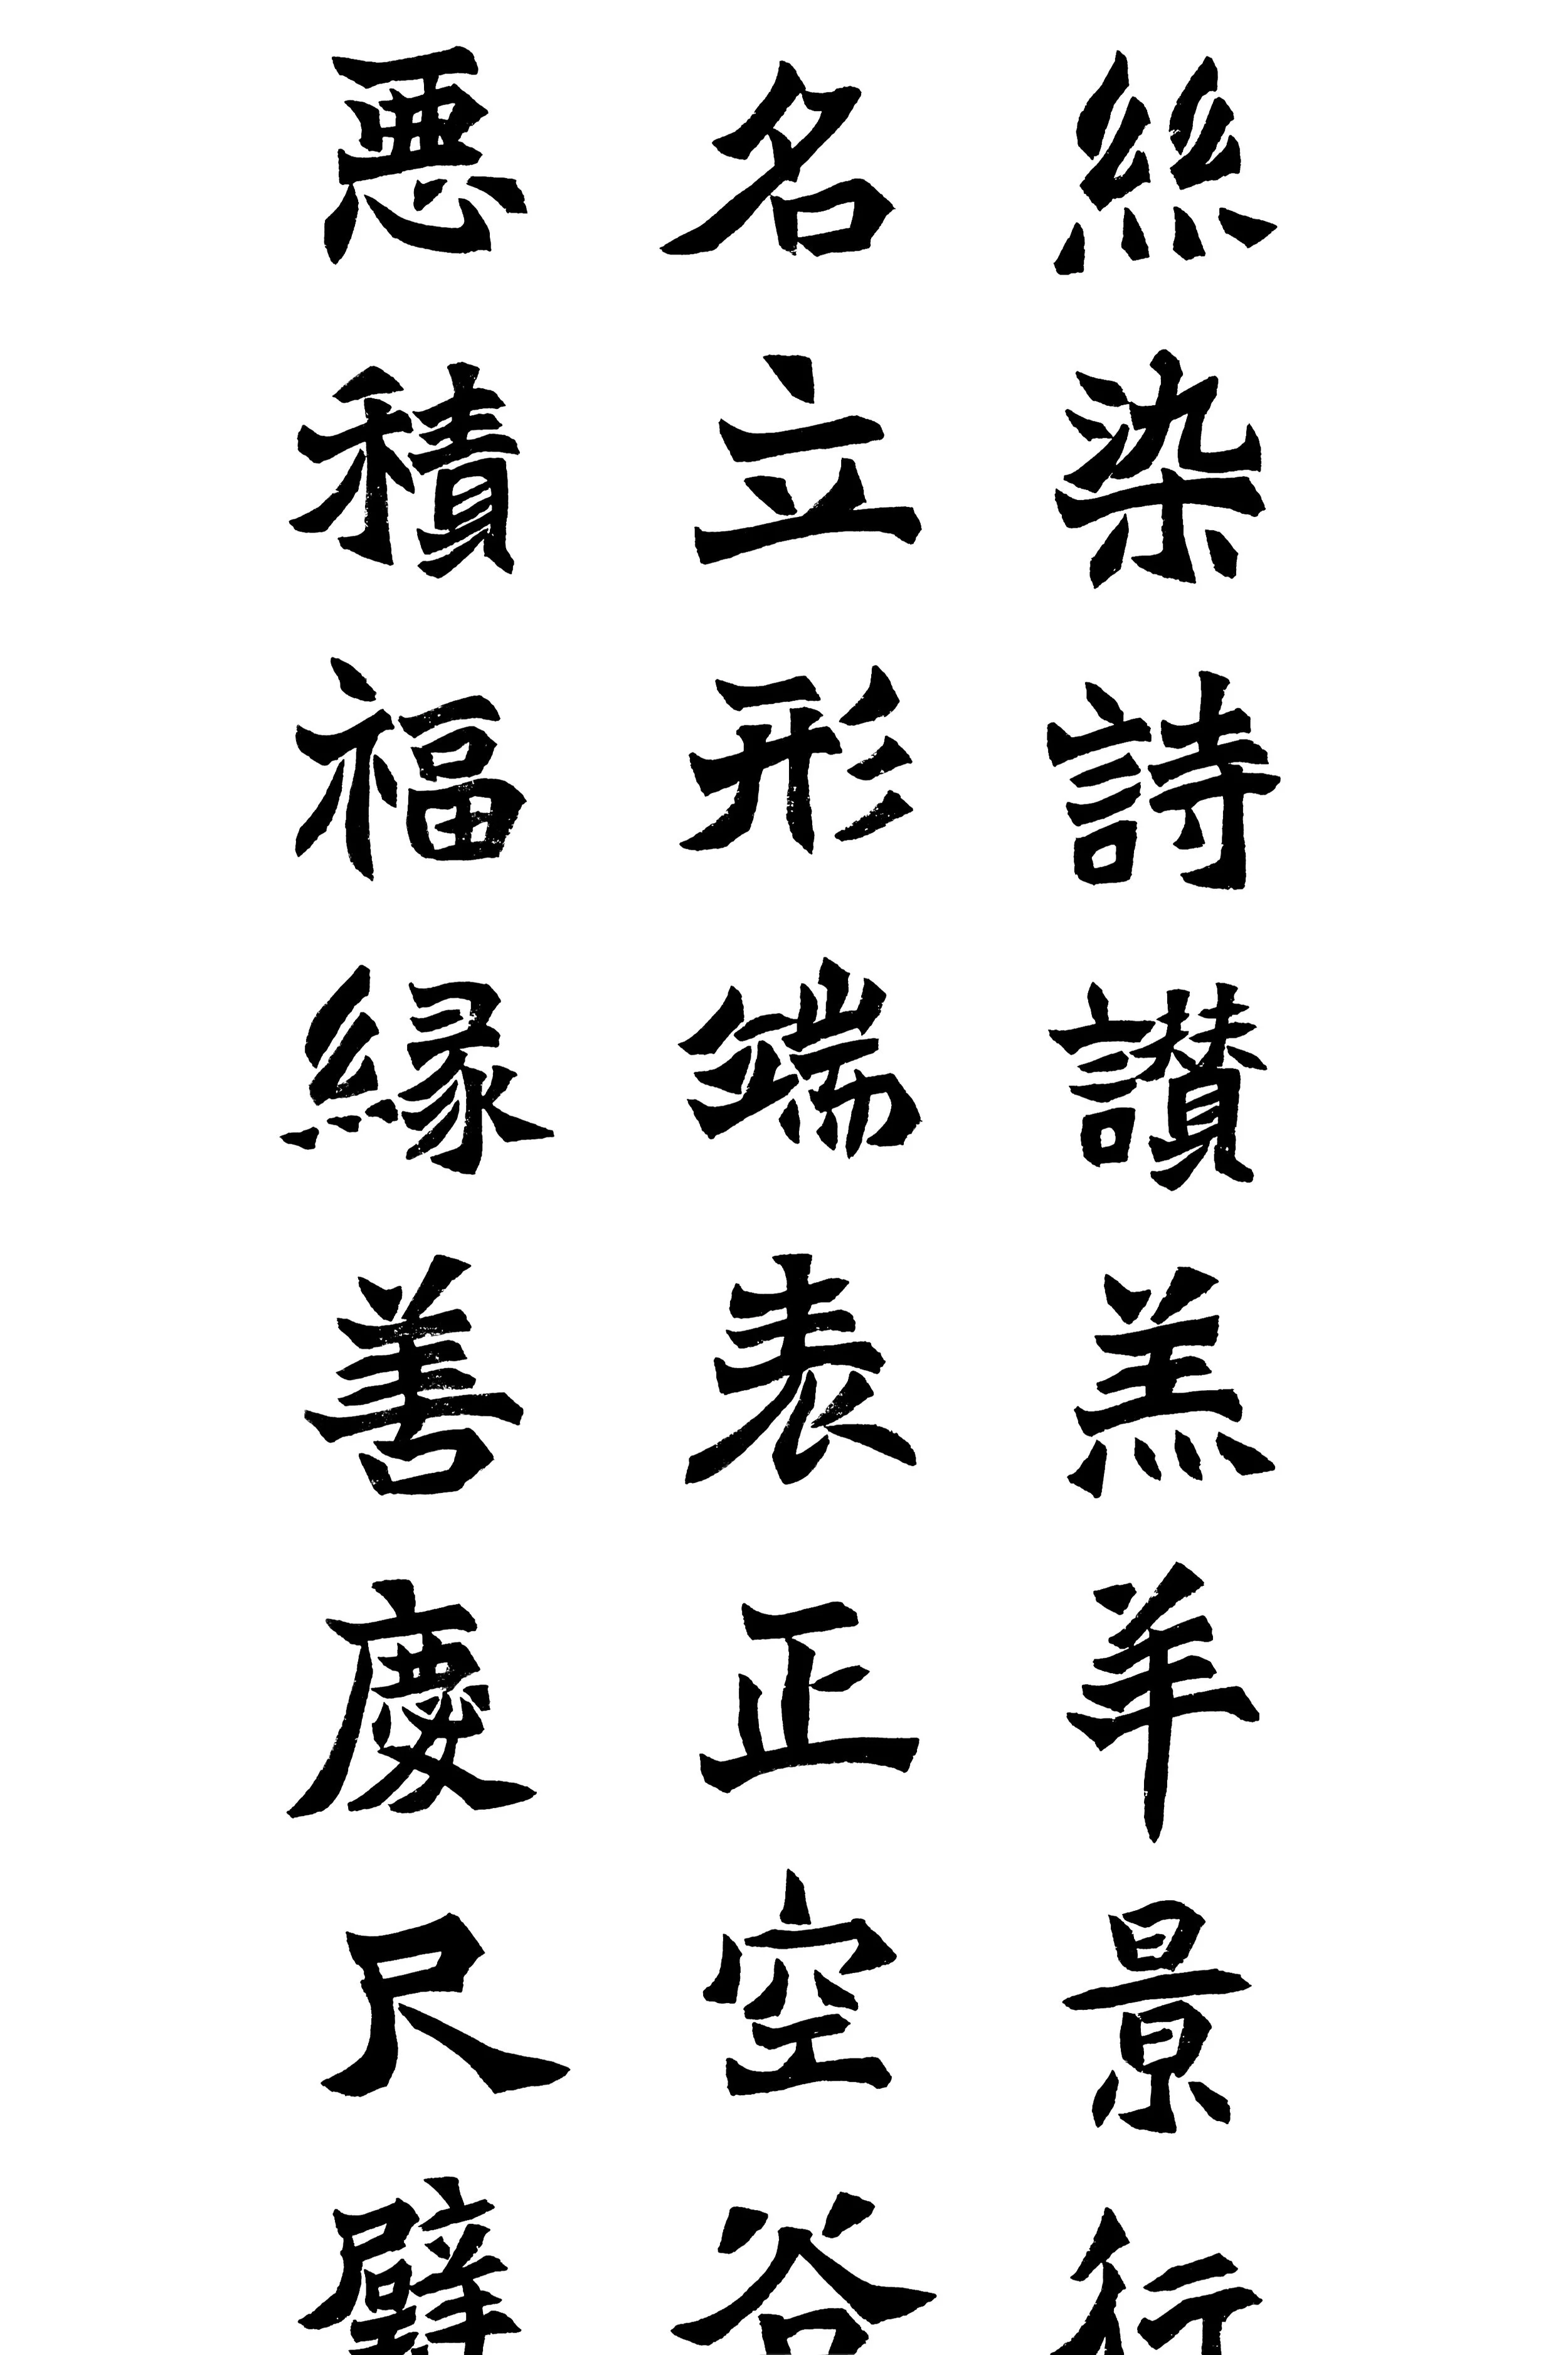 絲染詩讃羔羊景行
名立形端表正空谷
悪積福縁善慶尺璧